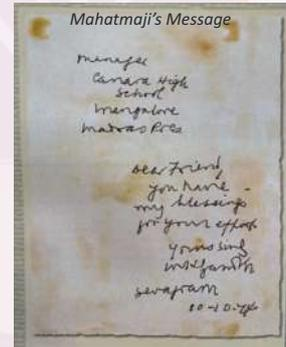 Mahatmaji's Message
Manager
Canara High
School
Mangalore
Madras Pres
Dear Friend,
You have
my blessings
for your effort
Yours sinly
MKGandhi
Sevagram